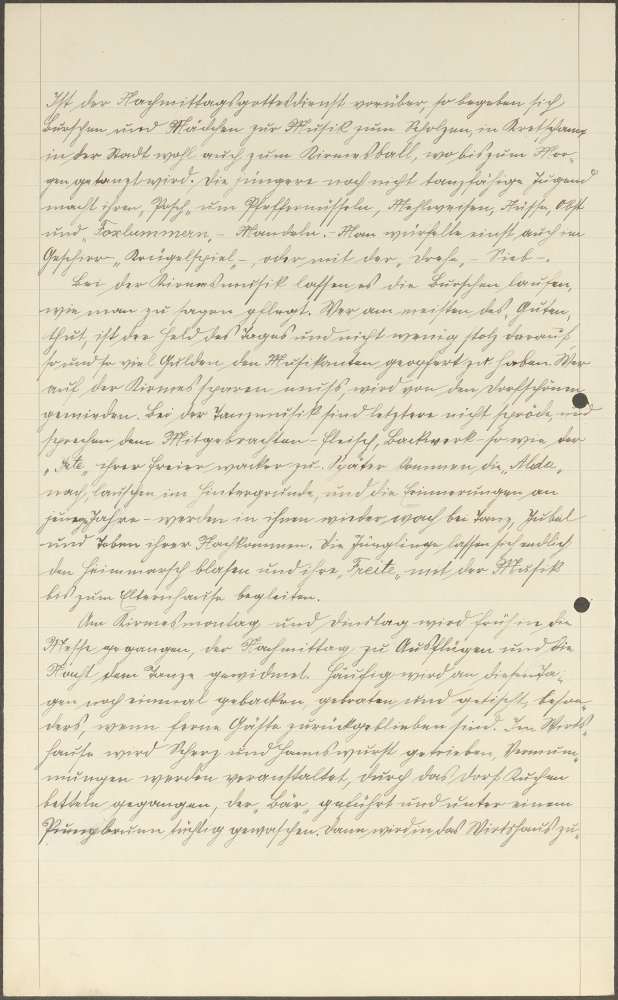 Ist der Nachmittagsgottesdienst vorüber, so begeben sich
Burschen und Mädchen zur Musik zum Scholzen, in Kretscham,
in der Stadt wohl auch zum Kirmesball, wo bis zum Mor-
gen getanzt wird. Die jüngere noch nicht tanzfähige Jugend
macht ihren „Posch„ um Pfeffernüsseln, Mehlweisen, Nüsse, Obst
und „ – Mandeln. – Man würfelte einst auch um
Geschirr – „Krügelspiel – oder mit der „Drehe„ – Sieb –.
Bei der Kirmesmusik lassen es die Burschen laufen,
wie man zu sagen pflegt. Wer am meisten des „Guten„
thut, ist der Held des Tages und nicht wenig stolz darauf,
so und so viel Gulden den Musikanten geopfert zu haben. Wer
auf der Kirmes sparen muss, wird von den Dorfschönen
gemieden. Bei der Tanzmusik sind letztere nicht spröde, und
sprechen dem Mitgebrachten – Fleisch, Backwerk – so wie der
ihrer Freier wacker zu. Später kommen die „Alda„
nach, lauschen im Hintergrunde, und die Erinnerungen an
Jahre – werden in ihnen wieder wach bei Tanz, Jubel
und Toben ihrer Nachkommen. Die Jünglinge lassen sich endlich
den Heimmarsch blasen und ihre „Freite„ mit der Musik
bis zum Elternhause begleiten.
Am Kirmesmontag und Dinstag wird frühe in die
Messe gegangen, der Nachmittag zu Ausflügen und die
Nacht dem Tanze gewidmet. Häufig wird an diesen Ta-
gen noch einmal gebacken, gebraten und getischt, beson-
ders, wenn ferne Gäste zurückgeblieben sind. Im Wirts-
hause wird Scherz und Hannswurst getrieben, Vermum-
mungen werden veranstaltet, durch das Dorf Kuchen
betteln gegangen, der „Bär„ geführt und unter einem
tüchtig gewaschen. Dann wird in das Wirtshaus zu-